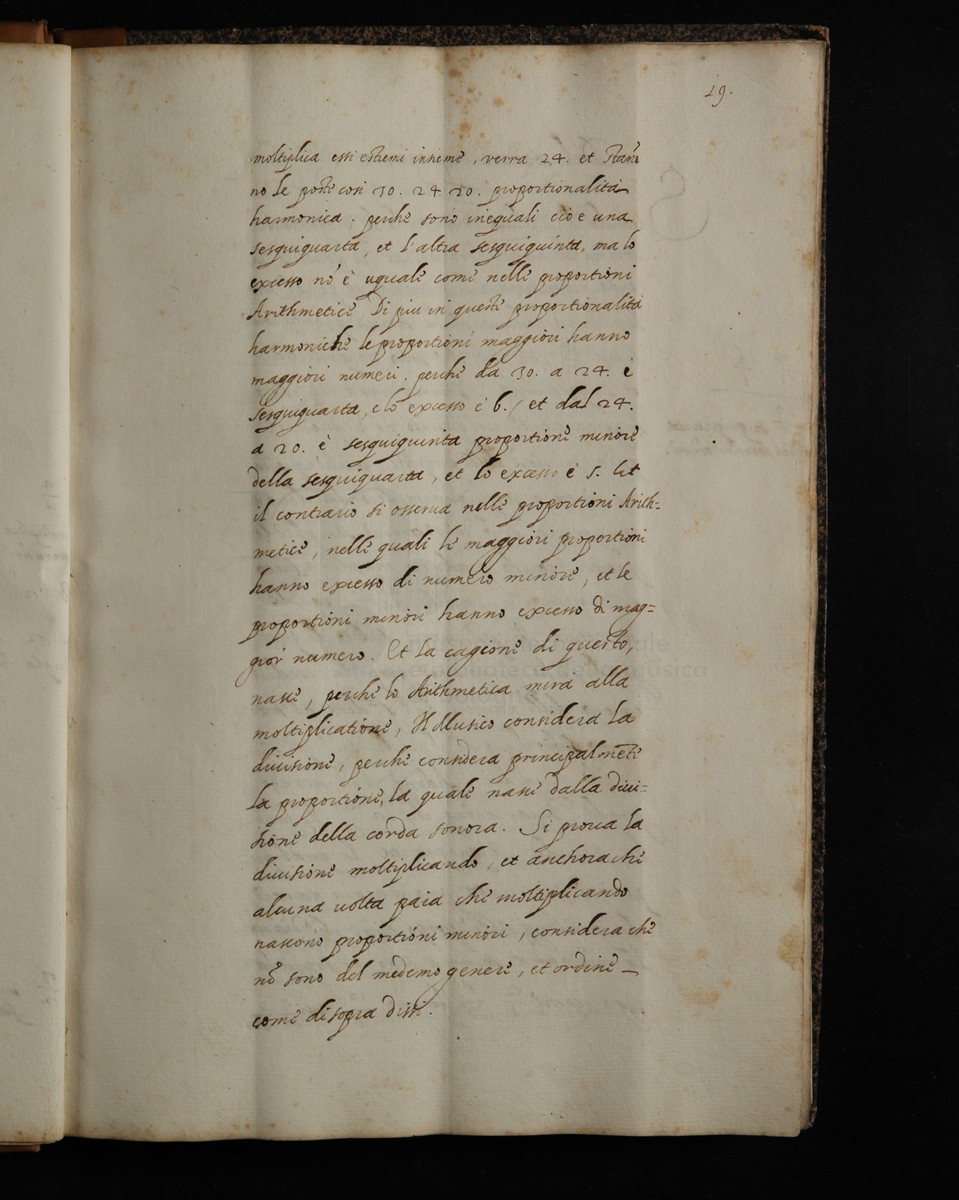 19.
moltiplica essi estremi insieme, verra 24. et stara̅
no le poste cosi 30. 24 20. proportionalità
harmonica. perche sono inequali cio e una
sesquiquarta, et l'altra sesquiquinta, ma lo
excesso nõ è uguale come nelle proportioni
Arithmetice Di piu in queste proportionalità
harmoniche le proportioni maggiori hanno
maggiori numeri. perche da 30. a 24. è
sesquiquarta, e lo excesso è 6. / et dal 24.
a 20. è sesquiquinta proportione minore
della sesquiquarta, et lo excesso è 5. Et
il contrario si osserua nelle proportioni Arith=
metice, nelle quali le maggiori proportioni
hanno excesso di numero minore, et le
proportioni minori hanno excesso di mag=
gior numero. Et la cagione di questo,
nasce, perche lo Arithmetica mira alla
moltiplicatione, Il Musico considera la
diuisione, perche considera principalmẽte
la proportione, la quale nasce dalla diui=
sione della corda sonora. Si proua la
diuisione moltiplicando, et anchora che
alcuna uolta paia che moltiplicando
nascono proportioni minori, considera che
nõ sono del medemo genere, et ordine
come di sopra dissi.